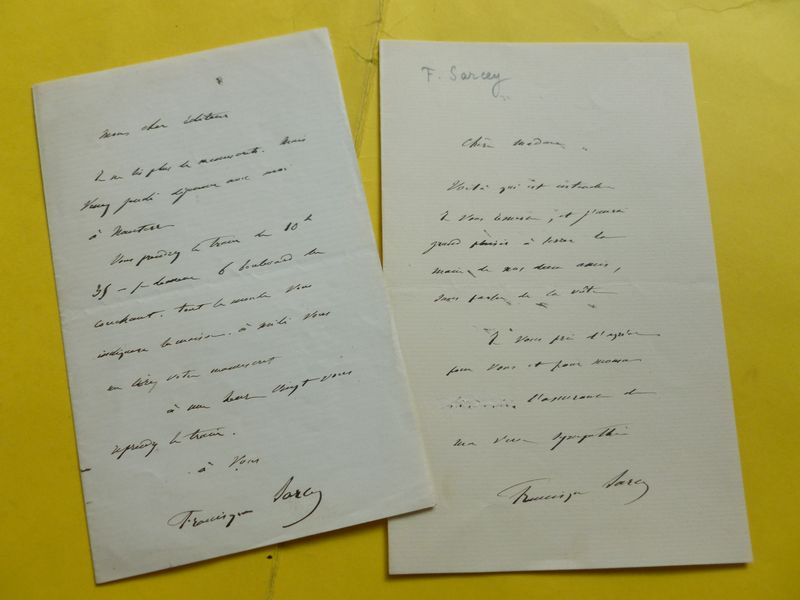 Mon cher éditeur
Je ne lis plus de manuscrits. Mais
Venez jeudi déjeuner avec moi
à Nanterre
Vous prendrez le train de 10 h
35 – je demeure 6 boulevard du
couchant. tout le monde Vous
indiquera la maison. à midi Vous
me lirez votre manuscrit
à une heure vingt vous
reprendrez le train.
à Vous
Francisque Sarcey
F. Sarcey
Chère madame
Voilà qui est entendu
Je Vous , et j'aurai
grand plaisir à serrer la
main de nos deux amis,
sans parler de la vôtre
Je Vous prie d'agréer
pour Vous et pour
l'assurance de
ma Vive sympathie
Francisque Sarcey